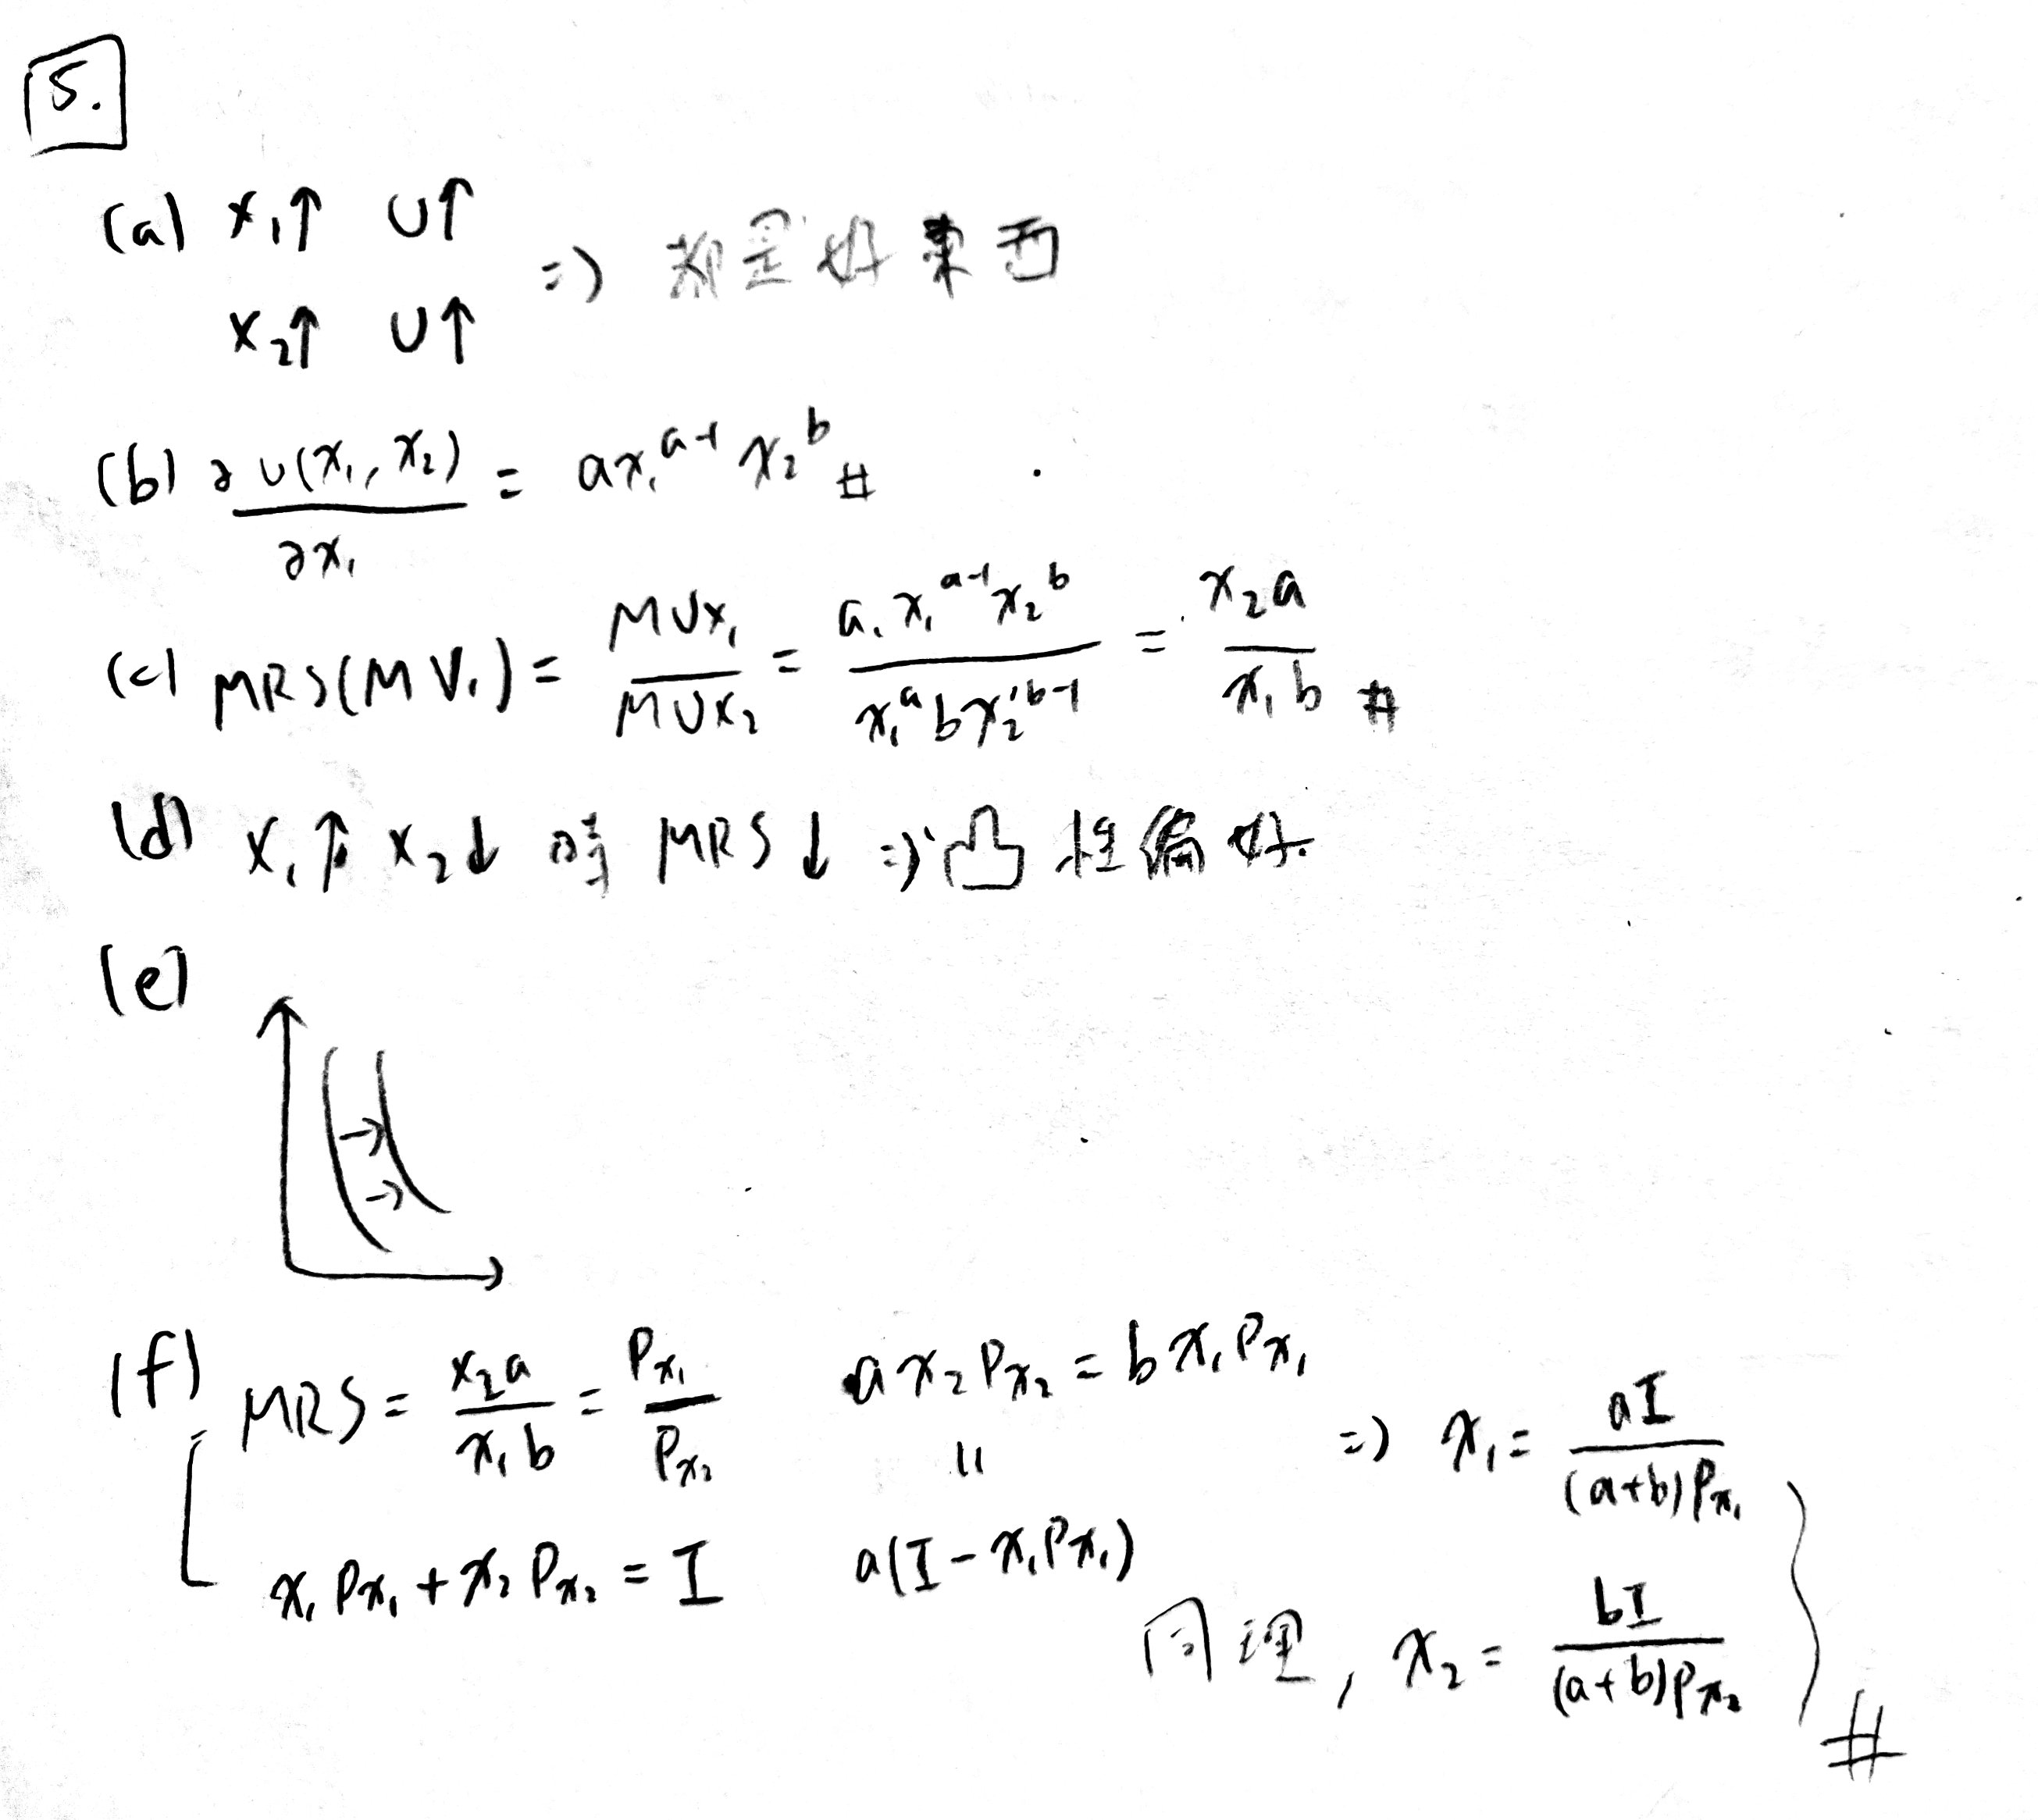 5.
(a) x₁↑ U↑
⇒ 都是好東西
x₂↑ U↑
(b) ∂U(x₁, x₂)/∂x₁ = ax₁^(a-1) x₂^b #
(c) MRS(MV₁) = MUx₁/MUx₂ = a.x₁^(a-1)x₂^b / x₁^a bx₂^(b-1) = x₂a/x₁b #
(d) x₁↑ x₂↓ 時 MRS↓ ⇒ 凸性偏好.
(e)
(f) MRS = x₂a/x₁b = Px₁/Px₂  ax₂Px₂ = bx₁Px₁
〃 ⇒ x₁ = aI/(a+b)Px₁
x₁Px₁ + x₂Px₂ = I  a(I-x₁Px₁)
同理, x₂ = bI/(a+b)Px₂
#